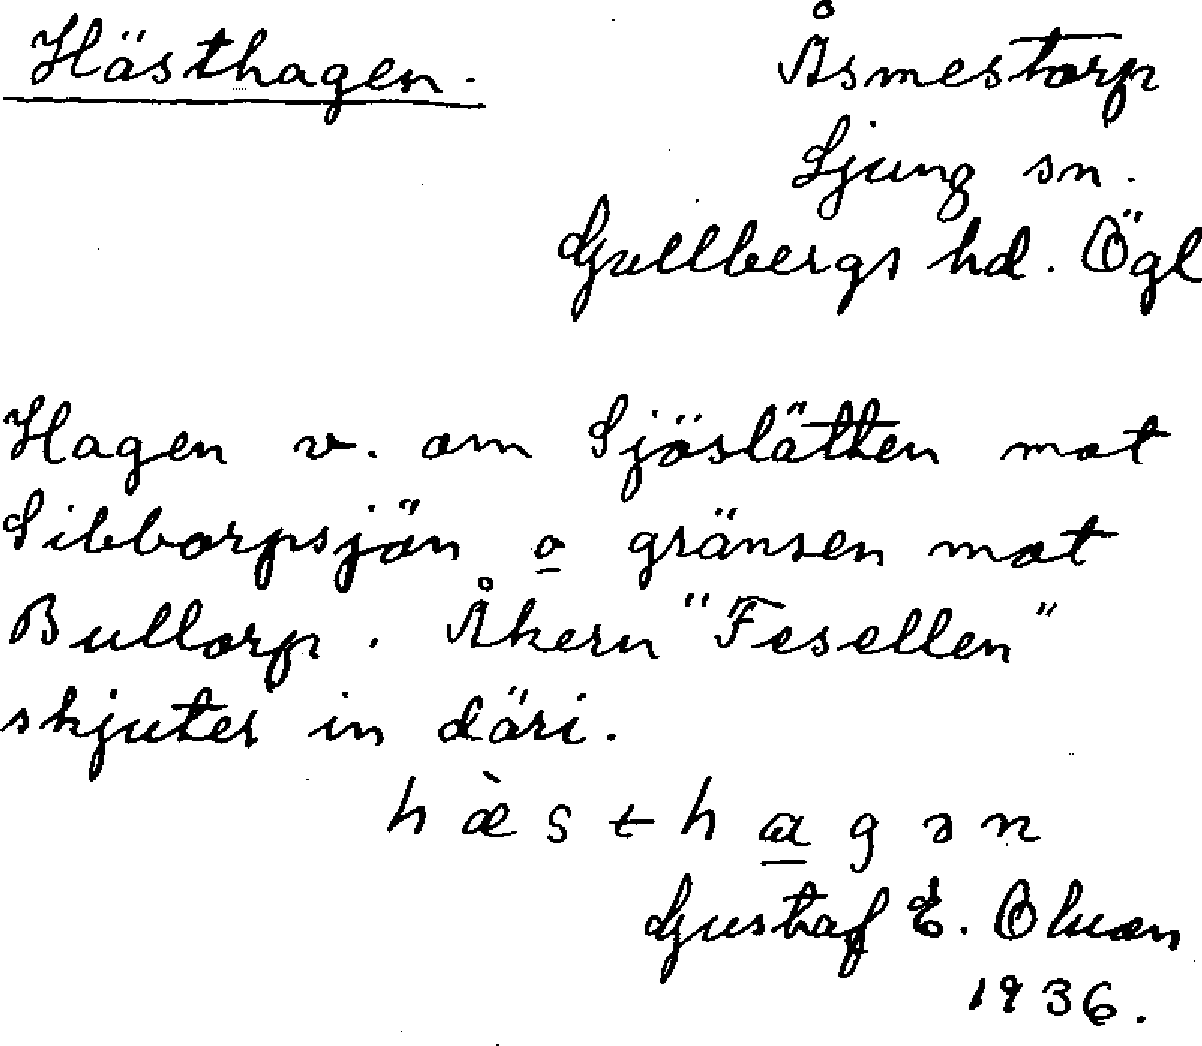 Hästhagen.
Åsmestorp
Ljung sn.
Gullbergs hd. Ögl
Hagen v. om Sjöslätten mot
Sibborpsjön o gränsen mot
Bullorp. Åkern "Fesellen"
skjuter in däri.
hæ̀sthagən
Gustaf E.
1936.